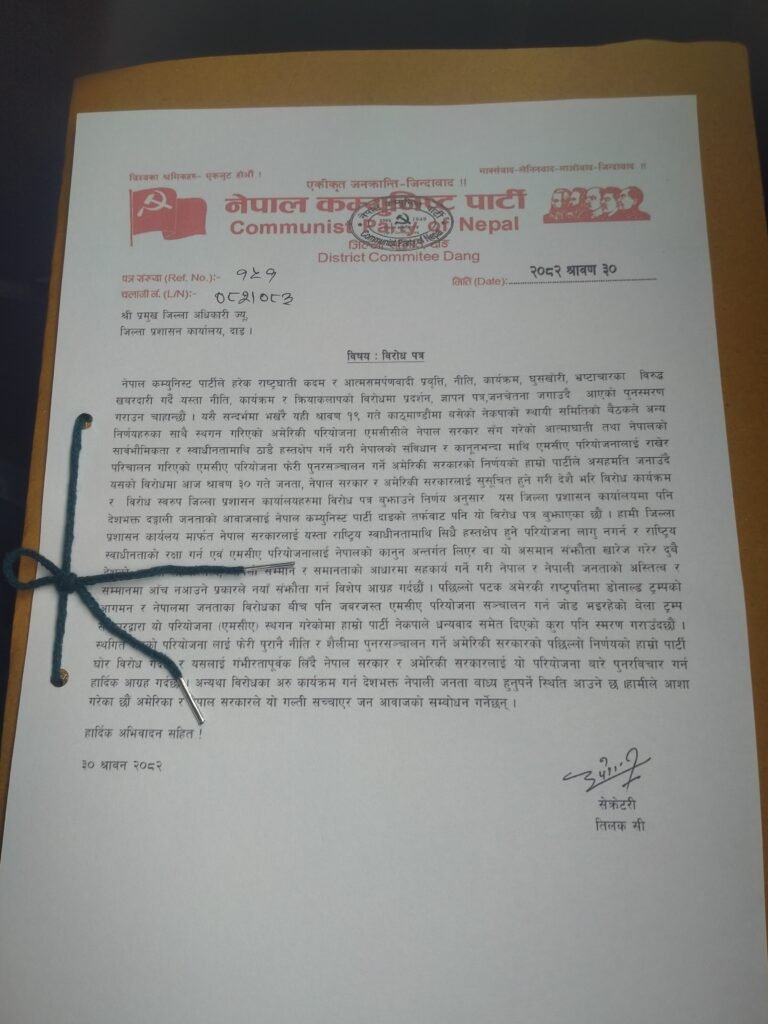 विश्वका श्रमिकहरु- एकजुट होऔं !
मार्क्सवाद-लेनिनवाद-माओवाद-जिन्दावाद !!
एकीकृत जनक्रान्ति-जिन्दावाद !!
नेपाल कम्युनिष्ट पार्टी
Communist Party of Nepal
जिल्ला दाङ
District Commitee Dang
पत्र संख्या (Ref. No.):- १५१
चलानी नं. (L/N):- ०८२/०८३
मिति (Date):- २०८२ श्रावण ३०
श्री प्रमुख जिल्ला अधिकारी ज्यू,
जिल्ला प्रशासन कार्यालय, दाङ ।
विषय : विरोध पत्र
नेपाल कम्युनिस्ट पार्टीले हरेक राष्ट्रघाती कदम र आत्मसमर्पणवादी प्रवृत्ति, नीति, कार्यक्रम, घुसखोरी, भ्रष्टाचारका विरुद्ध
खवरदारी गर्दै यस्ता नीति, कार्यक्रम र क्रियाकलापको विरोधमा प्रदर्शन, ज्ञापन पत्र,जनचेतना जगाउदै आएको पुनस्मरण
गराउन चाहान्छौ । यसै सन्दर्भमा भर्खरै यही श्रावण १९ गते काठ्माण्डौमा बसेको नेकपाको स्थायी समितिको बैठकले अन्य
निर्णयहरुका साथै स्थगन गरिएको अमेरिकी परियोजना एमसीसीले नेपाल सरकार संग गरेको आत्माघाती तथा नेपालको
सार्वभौमिकता र स्वाधीनतामाथि ठाडै हस्तक्षेप गर्ने गरी नेपालको संविधान र कानूनभन्दा माथि एमसीए परियोजनालाई राखेर
परिचालन गरिएको एमसीए परियोजना फेरी पुनरसञ्चालन गर्ने अमेरिकी सरकारको निर्णयको हाम्रो पार्टीले असहमति जनाउदै
यसको विरोधमा आज श्रावण ३० गते जनता, नेपाल सरकार र अमेरिकी सरकारलाई सुसूचित हुने गरी देशै भरि विरोध कार्यक्रम
र विरोध स्वरुप जिल्ला प्रशासन कार्यालयहरुमा विरोध पत्र बुझाउने निर्णय अनुसार यस जिल्ला प्रशासन कार्यालयमा पनि
देशभक्त दङ्गाली जनताको आवाजलाई नेपाल कम्युनिस्ट पार्टी दाङको तर्फवाट पनि यो विरोध पत्र बुझाएका छौं । हामी जिल्ला
प्रशासन कार्यलय मार्फत नेपाल सरकारलाई यस्ता राष्ट्रिय स्वाधीनतामाथि सिधै हस्तक्षेप हुने परियोजना लागु नगर्न र राष्ट्रिय
स्वाधीनताको रक्षा गर्न एवं एमसीए परियोजनालाई नेपालको कानून अन्तर्गत लिएर वा यो असमान संझौता खारेज गरेर दुबै
सम्मान र समानताको आधारमा सहकार्य गर्ने गरी नेपाल र नेपाली जनताको अस्तित्व र
सम्मानमा आँच नआउने प्रकारले नयाँ संझौता गर्न विशेष आग्रह गर्दछौं । पछिल्लो पटक अमेरकी राष्ट्रपतिमा डोनाल्ड ट्रम्पको
आगमन र नेपालमा जनताका विरोधका बीच पनि जवरजस्त एमसीए परियोजना सञ्चालन गर्न जोड भइरहेको वेला ट्रम्प
यो परियोजना (एमसीए) स्थगन गरेकोमा हाम्रो पार्टि नेकपाले धन्यवाद समेत दिएको कुरा पनि स्मरण गराउँदछौं ।
स्थगित परियोजना लाई फेरी पुरानै नीति र शैलीमा पुनरसञ्चालन गर्ने अमेरिकी सरकारको पछिल्लो निर्णयको हाम्रो पार्टी
घोर विरोध र यसलाई गंभीरतापूर्वक लिँदै नेपाल सरकार र अमेरिकी सरकारलाई यो परियोजना बारे पुनरविचार गर्न
हार्दिक आग्रह गर्दछौं । अन्यथा विरोधका अरु कार्यक्रम गर्न देशभक्त नेपाली जनता वाध्य हुनुपर्ने स्थिति आउने छ ।हामीले आशा
गरेका छौं अमेरिका र सरकारले यो गल्ती सच्चाएर जन आवाजको सम्वोधन गर्नेछन् ।
हार्दिक अभिवादन सहित !
३० श्रावन २०८२
सेक्रेटरी
तिलक सी